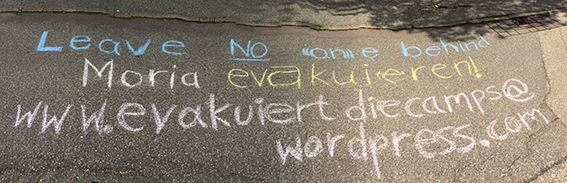 Leave NO one behind
Moria evakuieren!
www.evakuiertdiecamps@
wordpress.com